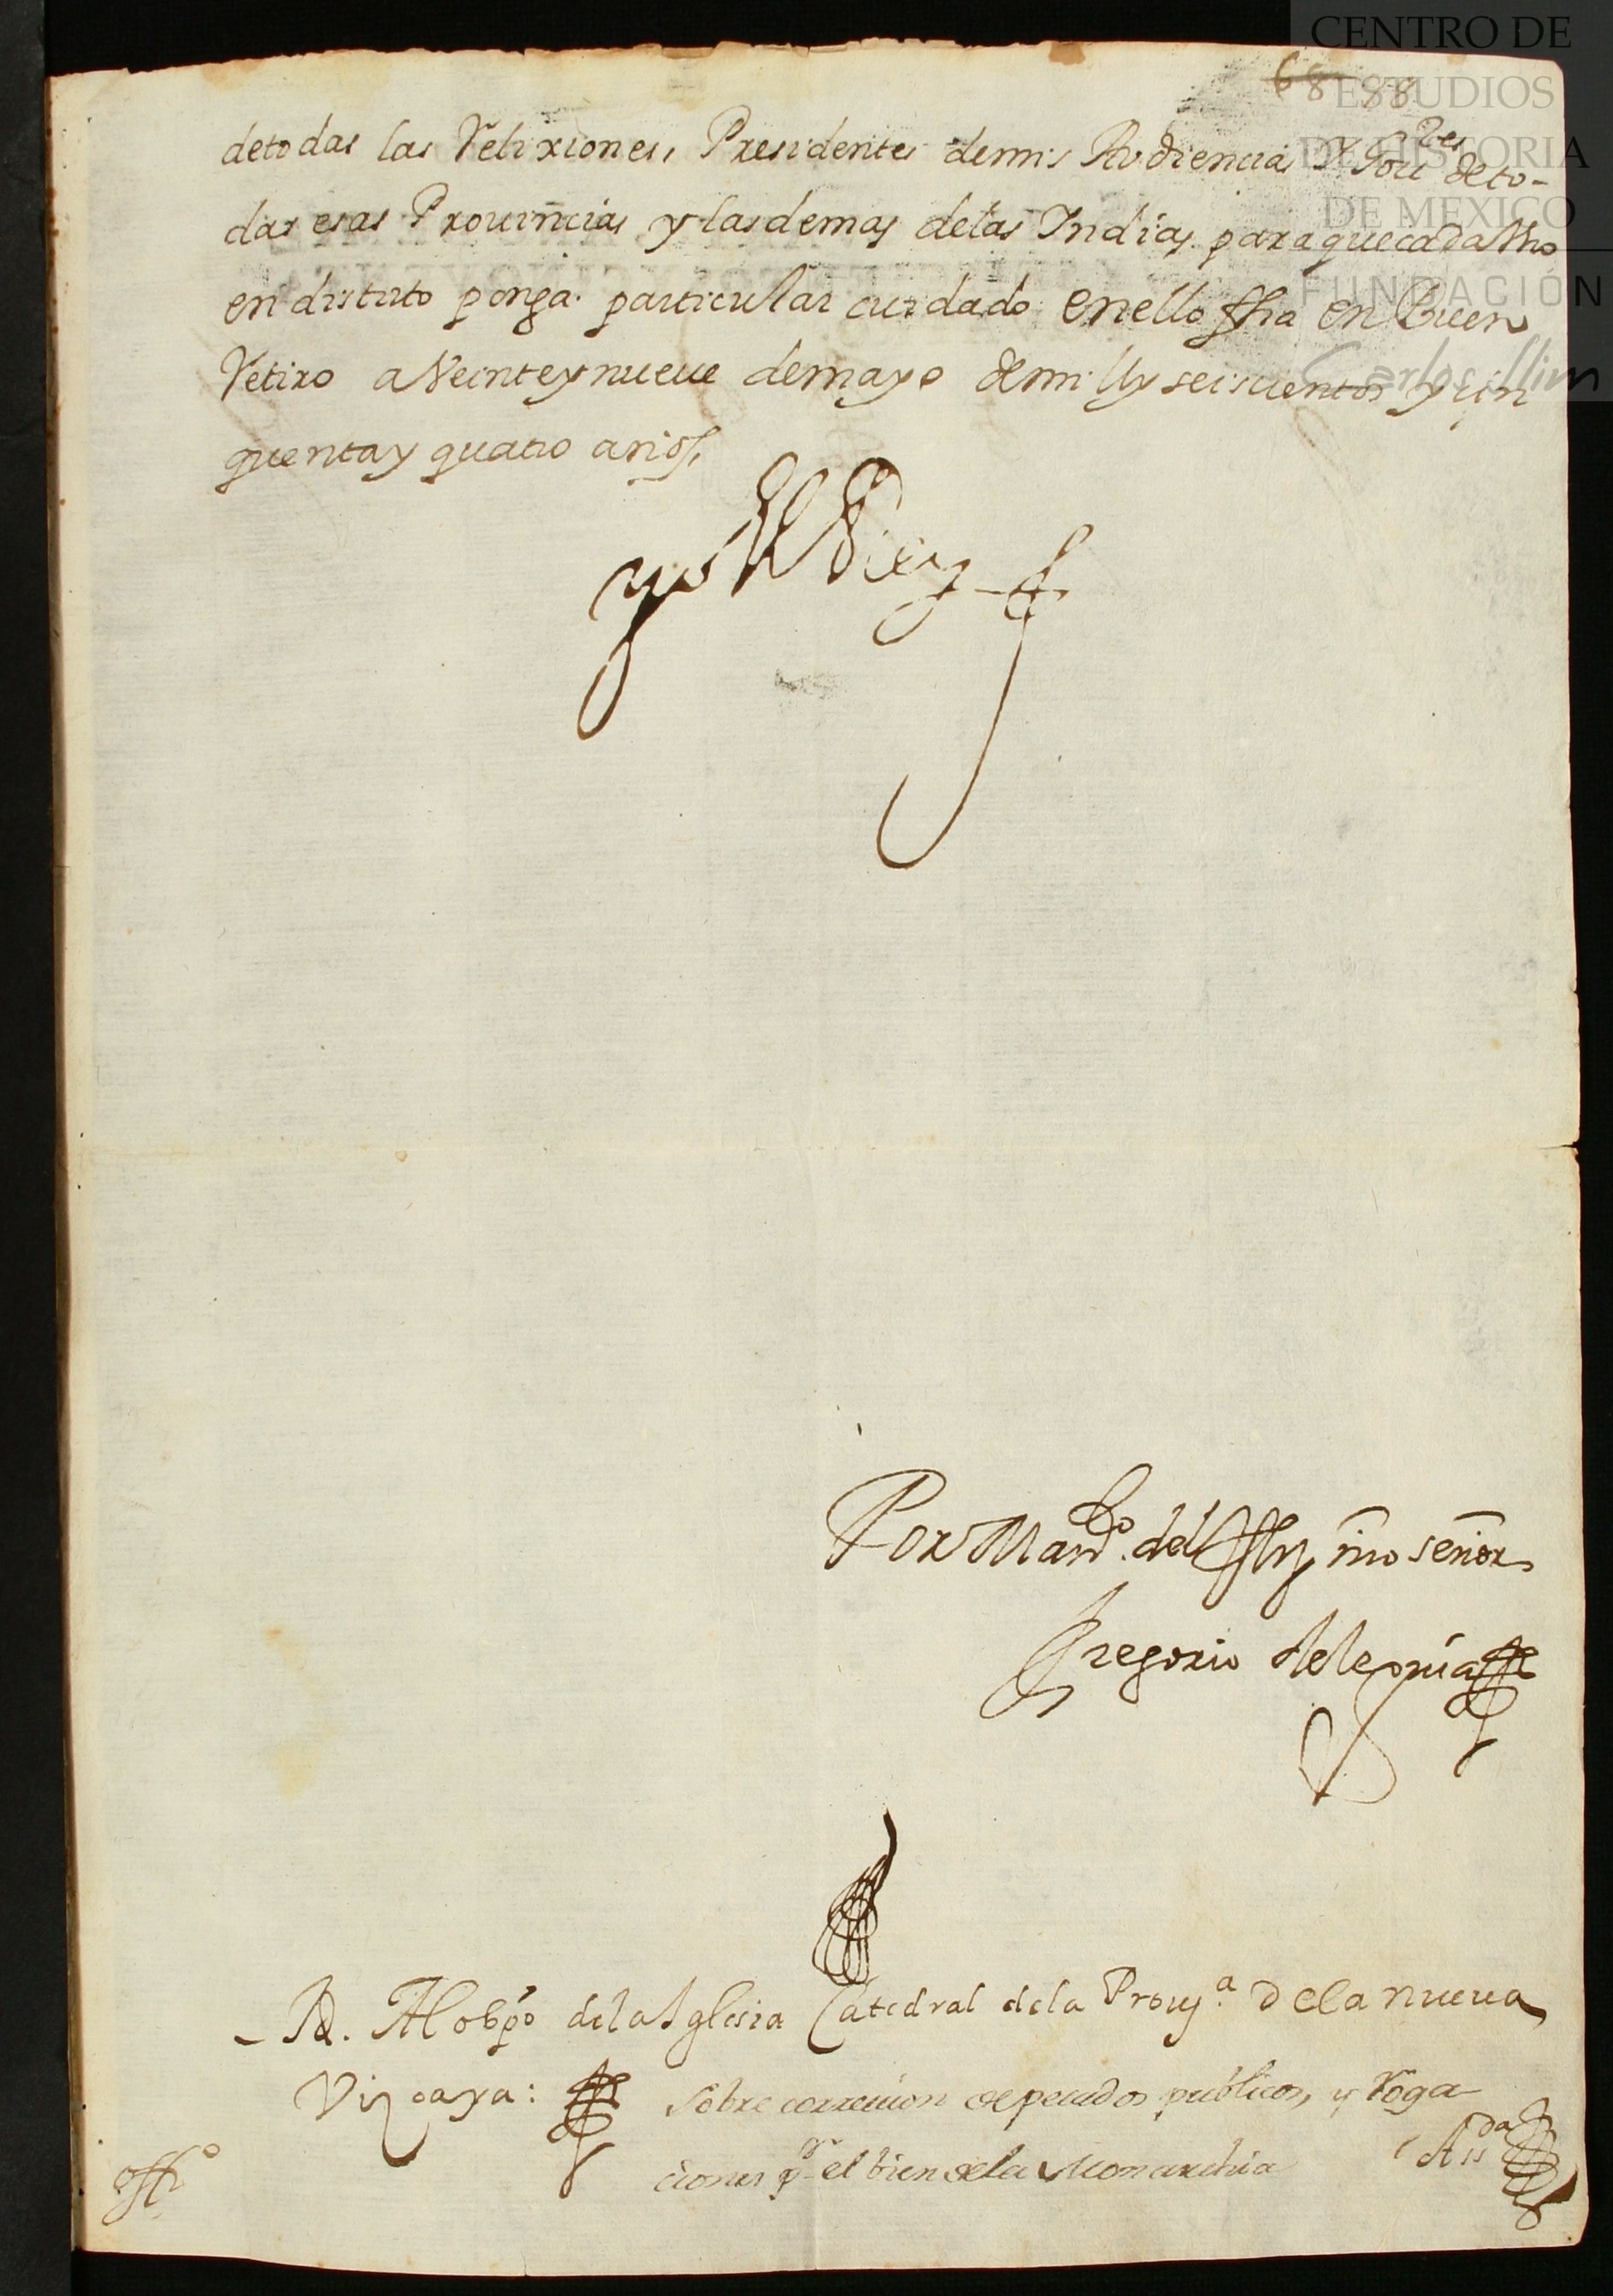 CENTRO DE
ESTUDIOS
DE HISTORIA
DE MEXICO
FUNDACIÓN
Carlos Slim
68 88
de todas las Relixiones, Presidentes de mis Audiencias Y Gou.res de to-
das esas Prouincias y las demas de las Indias para que cada Vno
en distrito ponga particular cuidado en ello fha en Buen
Retiro a Veinte y nueue de mayo de mill y seiscientos y cin
quenta y quatro años,
yo el Rey
Por Mando. del Rey nro señor
Gregorio de leguia
R. Al obpo de la Iglesia Catedral de la Prouj.a De la nueua
Vizcaya:
Sobre correcion de pecados publicos, y Roga
ciones pr el bien de la Monarchia
Assda
offo